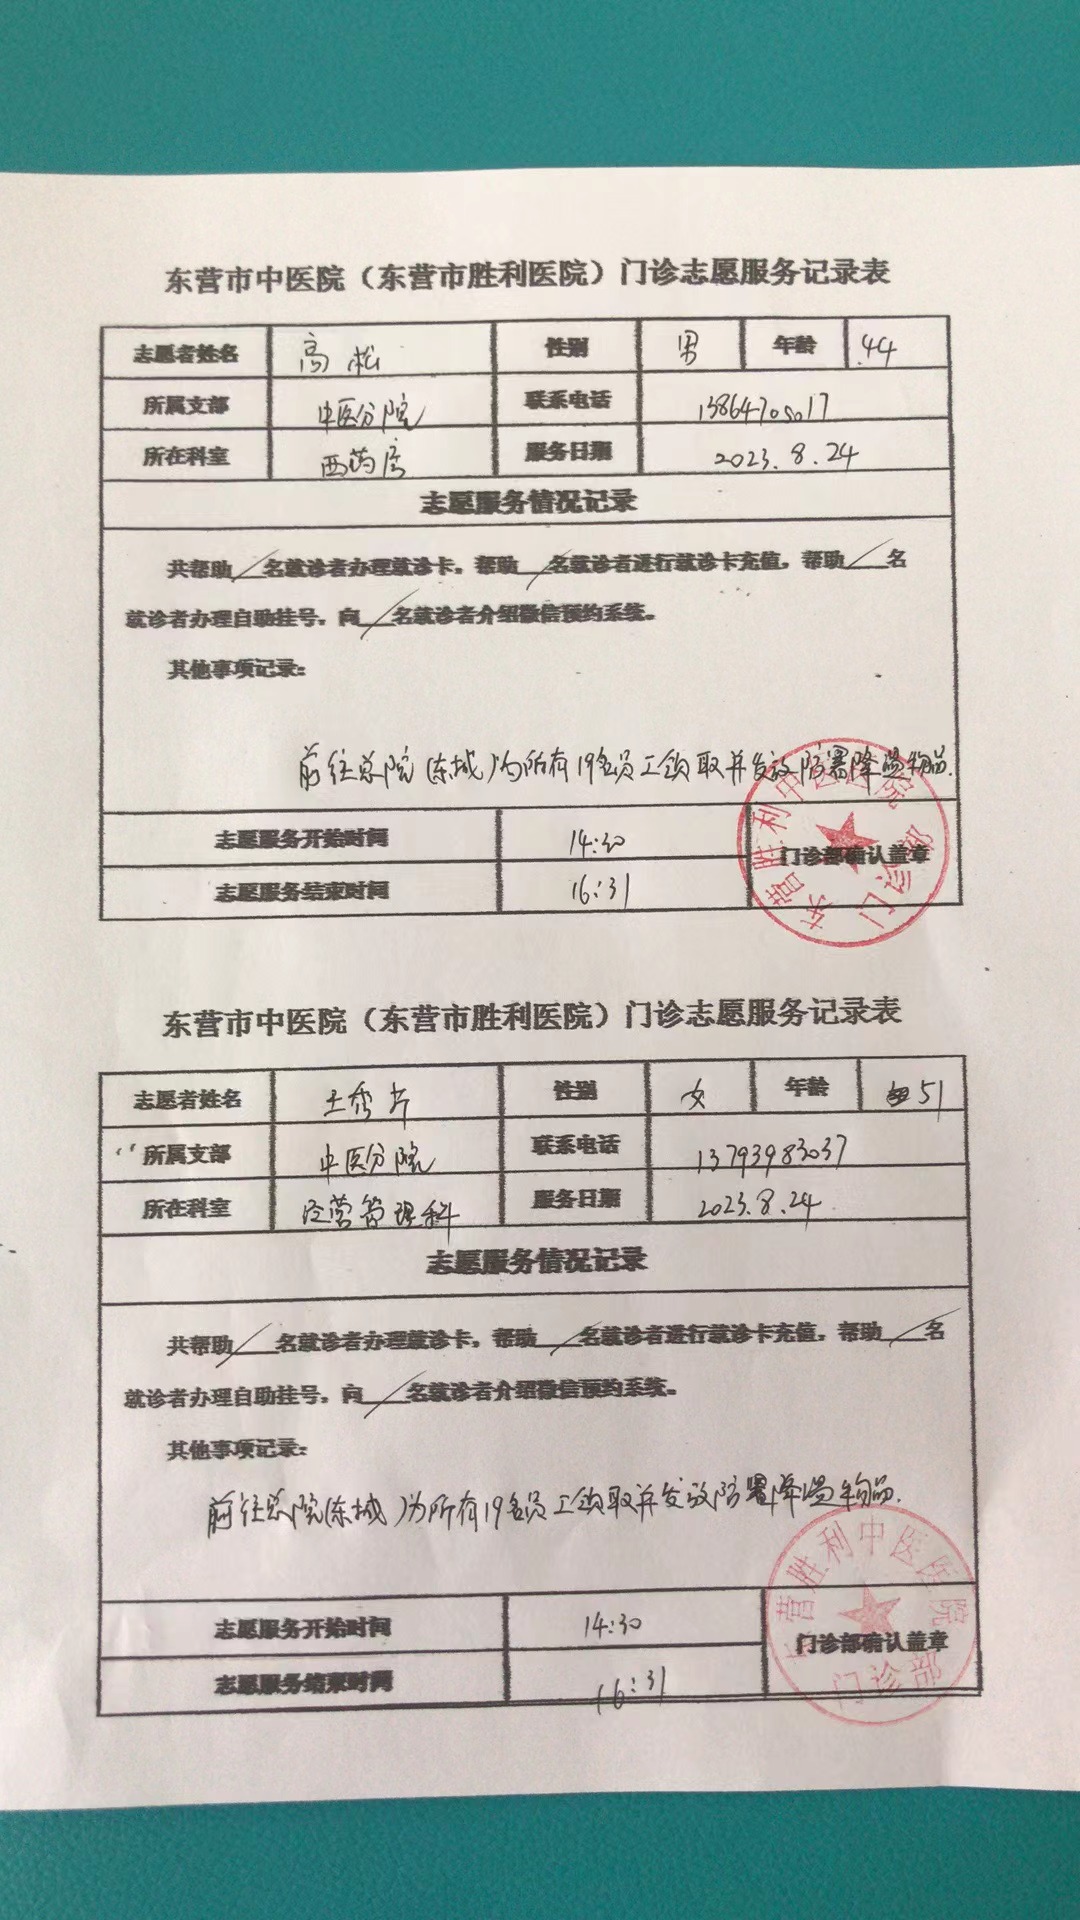 东营市中医院（东营市胜利医院）门诊志愿服务记录表
志愿者姓名 高松 性别 男 年龄 44
所属支部 中医分院 联系电话 13864705017
所在科室 西药房 服务日期 2023.8.24
志愿服务情况记录
共帮助／名就诊者办理就诊卡，帮助／名就诊者进行就诊卡充值，帮助／名
就诊者办理自助挂号，向／名就诊者介绍微信预约系统。
其他事项记录：
前往总院（东城）为所有19名员工领取并发放防暑降温物品.
志愿服务开始时间 14:30 门诊部确认盖章
志愿服务结束时间 16:31
东营胜利中医医院
门诊部
东营市中医院（东营市胜利医院）门诊志愿服务记录表
志愿者姓名 王秀芹 性别 女 年龄 51
所属支部 中医分院 联系电话 13793983037
所在科室 经营管理科 服务日期 2023.8.24
志愿服务情况记录
共帮助／名就诊者办理就诊卡，帮助／名就诊者进行就诊卡充值，帮助／名
就诊者办理自助挂号，向／名就诊者介绍微信预约系统。
其他事项记录：
前往总院（东城）为所有19名员工领取并发放防暑降温物品.
志愿服务开始时间 14:30 门诊部确认盖章
志愿服务结束时间 16:31
营胜利中医医院
门诊部